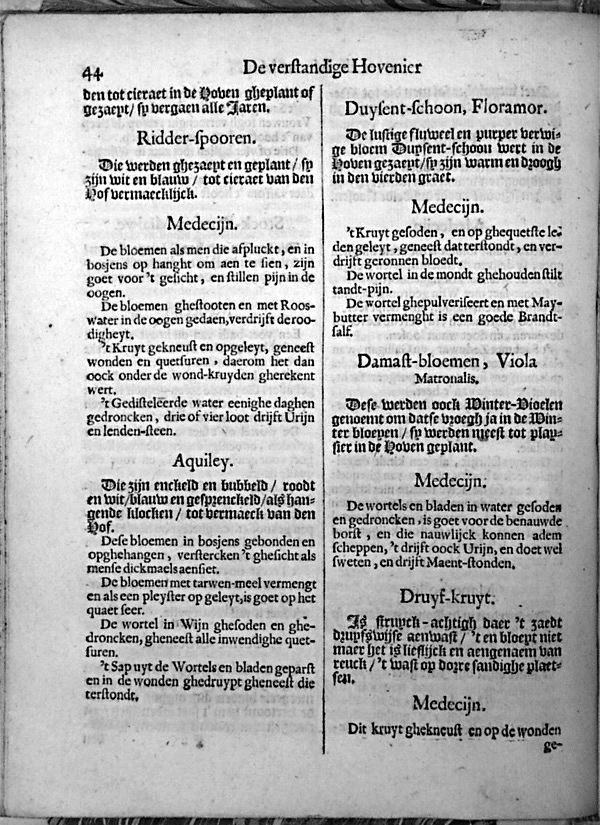 44.
De verstandige Hovenier
den tot cieraet in de Hoven gheplant of
gezaeyt / sy vergaen alle Jaren.
Ridder-spooren.
Die werden ghezaeyt en geplant / sy
zijn wit en blauw / tot cieraet van den
Hof vermaecklijck.
Medecijn.
De bloemen als men die afpluckt, en in
bosjens op hanght om aen te sien, zijn
goet voor 't gesicht, en stillen pijn in de
oogen.
De bloemen ghestooten en met Roos-
water in de oogen gedaen, verdrijft de roo-
digheyt.
't Kruyt gekneust en opgeleyt, geneest
wonden en quetsuren, daerom het dan
oock onder de wond-kruyden gherekent
wert.
't Gedisteleerde water eenighe daghen
gedroncken, drie of vier loot drijft Urijn
en lenden-steen.
Aquiley.
Die zijn enckeld en bubbeld / roodt
en wit / blauw en gesprenckeld / als han-
gende klocken / tot vermaeck van den
Hof.
Dese bloemen in bosjens gebonden en
opghehangen, verstercken 't ghesicht als
mense dickmaels aensiet.
De bloemen met tarwen-meel vermengt
en als een pleyster op geleyt, is goet op het
quaet seer.
De wortel in Wijn ghesoden en ghe-
droncken, gheneest alle inwendighe quet-
suren.
't Sap uyt de Wortels en bladen geparst
en in de wonden ghedruypt gheneest die
terstondt.
Duysent-schoon, Floramor.
De lustige fluweel en purper verwi-
ge bloem Duysent-schoon wert in de
Hoven gezaeyt / sy zijn warm en droogh
in den vierden graet.
Medecijn.
't Kruyt gesoden, en op ghequetste le-
den geleyt, geneest dat terstondt, en ver-
drijft geronnen bloedt.
De wortel in de mondt ghehouden stilt
tandt-pijn.
De wortel ghepulveriseert en met May-
butter vermenght is een goede Brandt-
salf.
Damast-bloemen, Viola
Matronalis.
Dese werden oock Winter-Violen
genoemt om datse vroegh ja in de Win-
ter bloeyen / sy werden meest tot play-
sier in de Hoven geplant.
Medecijn.
De wortels en bladen in water gesoden
en gedroncken, is goet voor de benauwde
borst, en die nauwlijck konnen adem
scheppen, 't drijft oock Urijn, en doet wel
sweten, en drijft Maent-stonden.
Druyf-kruyt.
Is struyck-achtigh daer 't zaedt
druyfswijse aenwast / 't en bloeyt niet
maer het is lieflijck en aengenaem van
reuck / 't wast op dorre sandighe plaet-
sen.
Medecijn.
Dit kruyt ghekneust en op de wonden
ge-